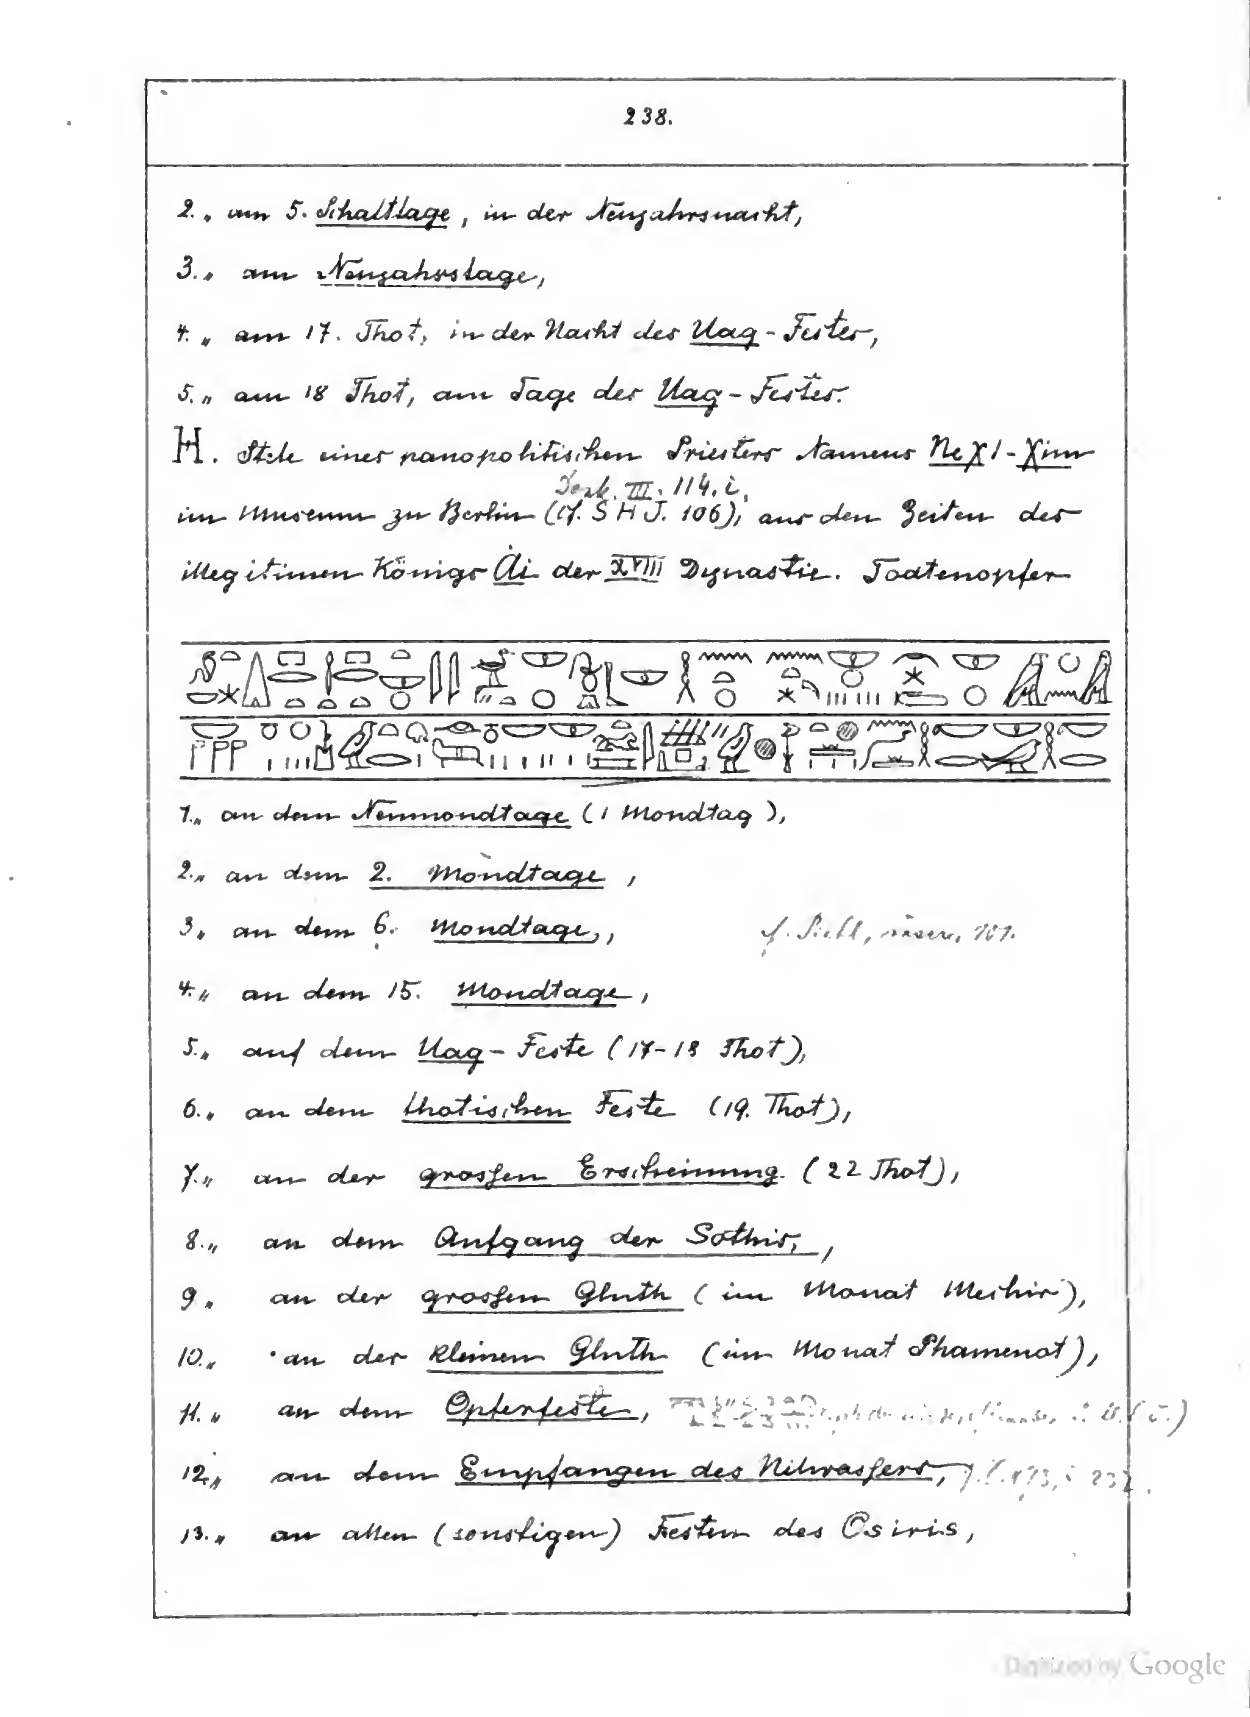 238.
2., am 5. Schalttage, in der Neujahrsnacht,
3., am Neujahrstage,
4., am 17. Thot, in der Nacht des Uag-Festes,
5., am 18 Thot, am Tage des Uag-Festes.
H. Stele eines panopolitischen Priesters Namens Neχt-χim
III, 114, i,
im Museum zu Berlin (cf. S H J. 106), aus den Zeiten des
illegitimen Königs Ai der XVIII Dynastie. Todtenopfer
1., an dem Neumondtage (1 Mondtag),
2., an dem 2. Mondtage,
3., an dem 6. Mondtage,,
4., an dem 15. Mondtage,
5., auf dem Uag-Feste (17-18 Thot),
6., an dem thotischen Feste (19. Thot),
7., an der grossen Erscheinung (22 Thot),
8., an dem Aufgang der Sothis,,
9., an der grossen Gluth (im Monat Mechir),
10., an der kleinen Gluth (im Monat Phamenot),
11., an dem Opferfeste,
12., an dem Empfangen des Nilwassers,
13., an allen (sonstigen) Festen des Osiris,
Digitized by Google